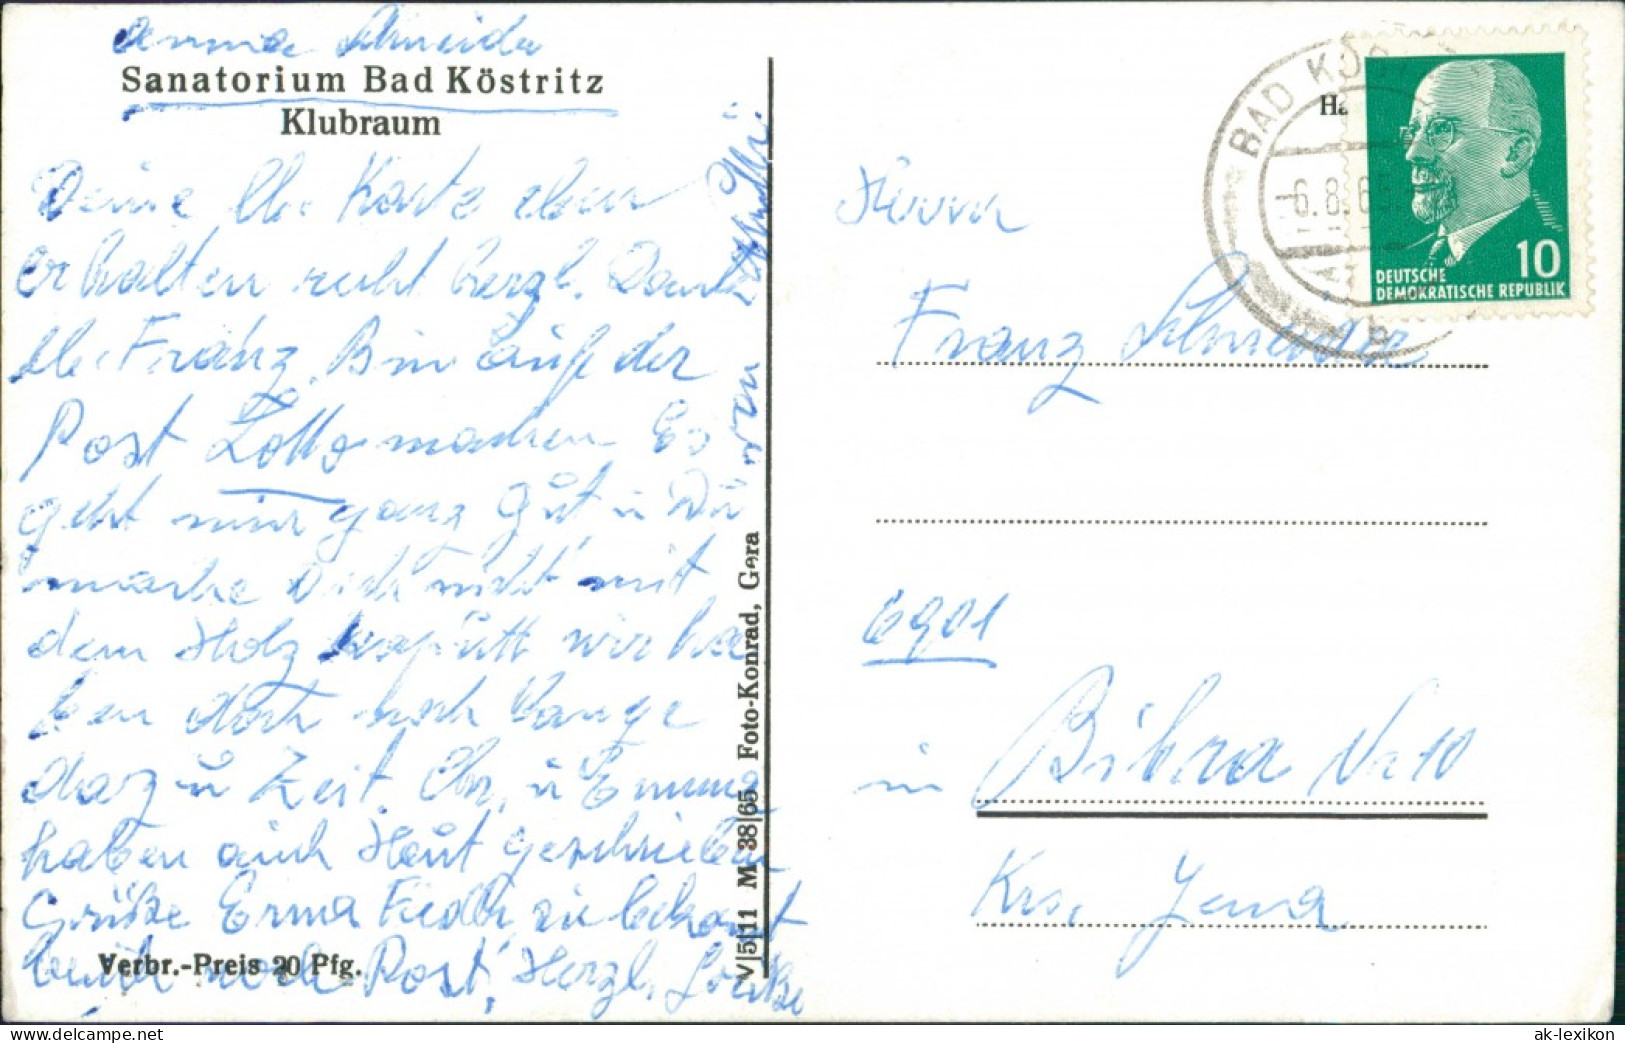 Schneider
Sanatorium Bad Köstritz
Klubraum
Deine lb. Karte eben
erhalten recht herzl. Dank
lb. Franz. Bin auf der
Post Lotto machen Es
geht mir ganz gut u Du
mache Dich nicht mit
dem Holz kaputt wir ha
ben doch noch lange
dazu Zeit. u Emma
haben auch Heut geschrieben
Grüße Erna
noch Post, Herzl. Grüße
von
Verbr.-Preis 20 Pfg.
V|5|11 M 38|65 Foto-Konrad, Gera
BAD KÖ
6.8.65
Ha
10
DEUTSCHE
DEMOKRATISCHE REPUBLIK
Herrn
Franz Schneider
6901
in Bibra Nr 10
Krs. Jena
delcampe.net
ak-lexikon